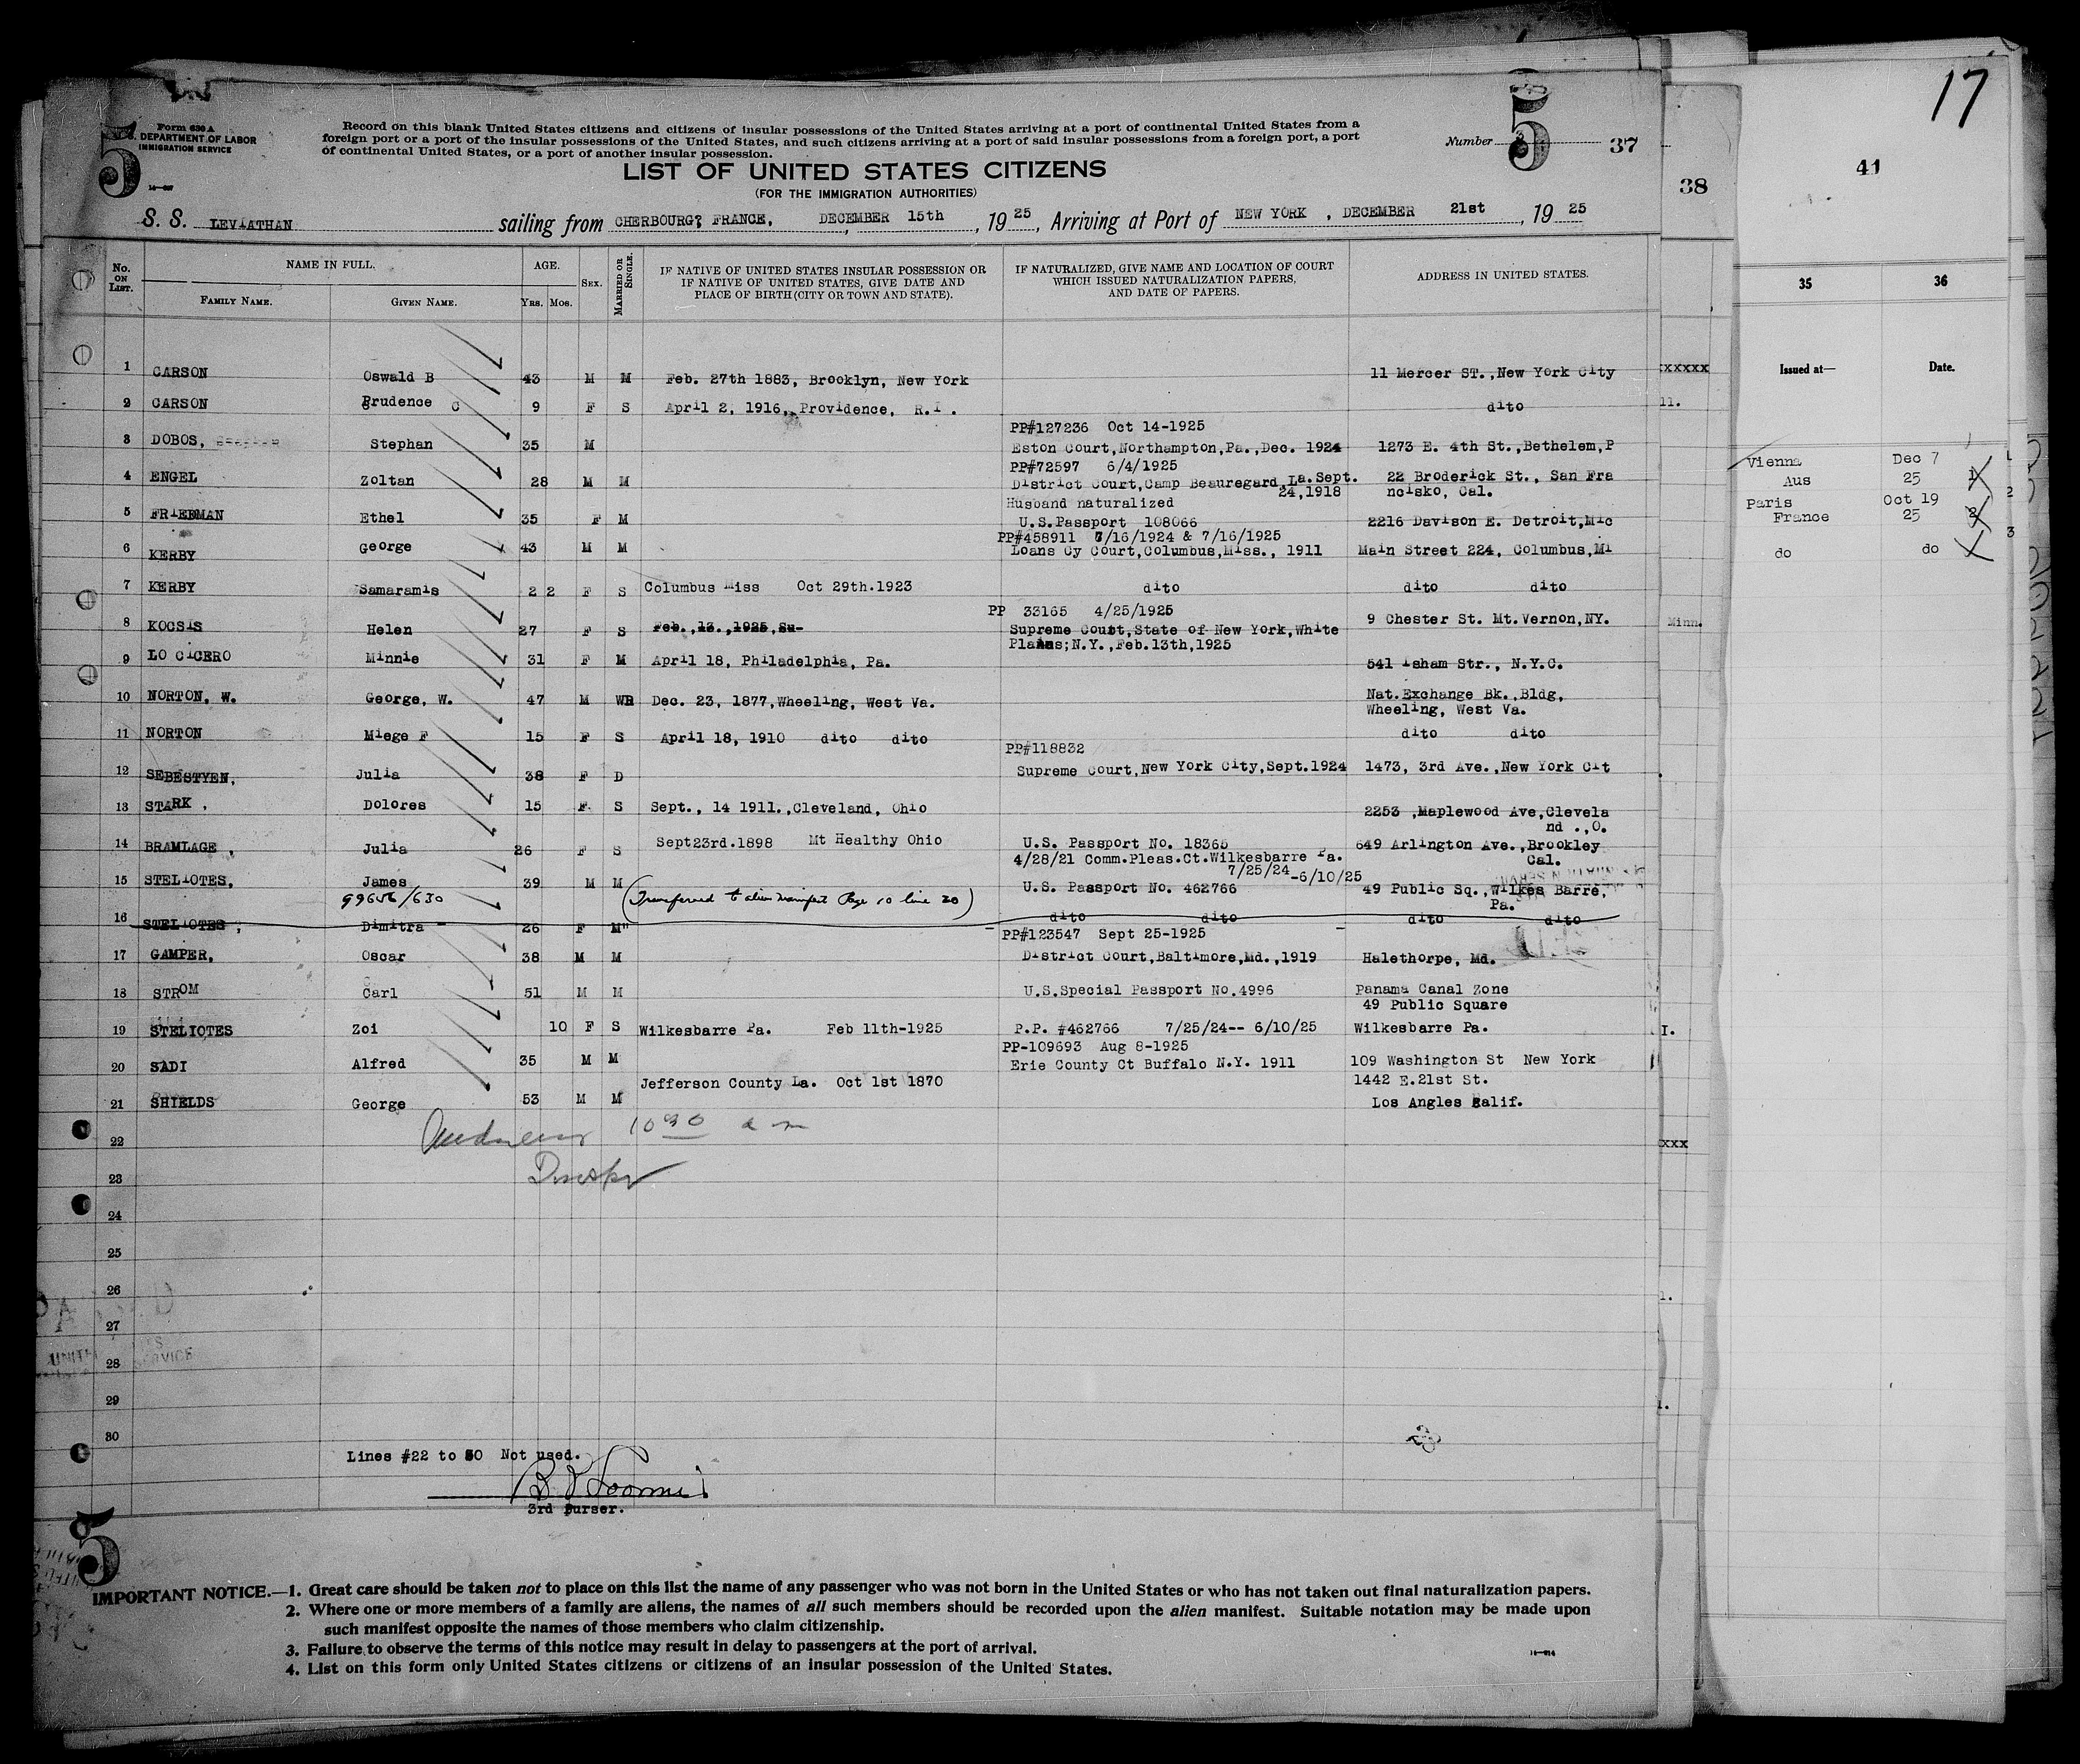 17
5
Form 630 A
U. S. DEPARTMENT OF LABOR
IMMIGRATION SERVICE
Record on this blank United States citizens and citizens of insular possessions of the United States arriving at a port of continental United States from a
foreign port or a port of the insular possessions of the United States, and such citizens arriving at a port of said insular possessions from a foreign port, a port
of continental United States, or a port of another insular possession.
Number 5 37
38
41
LIST OF UNITED STATES CITIZENS
(FOR THE IMMIGRATION AUTHORITIES)
S. S. LEVIATHAN sailing from CHERBOURG? FRANCE, DECEMBER 15th, 1925, Arriving at Port of NEW YORK , DECEMBER 21st, 1925
No. ON LIST. NAME IN FULL. AGE. SEX. MARRIED OR SINGLE. IF NATIVE OF UNITED STATES INSULAR POSSESSION OR IF NATIVE OF UNITED STATES, GIVE DATE AND PLACE OF BIRTH (CITY OR TOWN AND STATE). IF NATURALIZED, GIVE NAME AND LOCATION OF COURT WHICH ISSUED NATURALIZATION PAPERS, AND DATE OF PAPERS. ADDRESS IN UNITED STATES.
FAMILY NAME. GIVEN NAME. YRS. MOS.
35 36
Issued at— Date.
1 CARSON Oswald B 43 M M Feb. 27th 1883, Brooklyn, New York 11 Mercer ST.,New York City
xxxxx
2 CARSON Prudence C 9 F S April 2, 1916, Providence, R.I. dito
11.
PP#127236 Oct 14-1925
3 DOBOS, Stephan 35 M Eston Court,Northampton,Pa.,Dec. 1924 1273 E. 4th St.,Bethelem,P
PP#72597 6/4/1925
4 ENGEL Zoltan 28 M M District Court,Camp Beauregard,La.Sept. 22 Broderick St., San Fra
24,1918 ncisko, Cal.
Husband naturalized
5 FRIEDMAN Ethel 35 F M U.S.Passport 108066 2216 Davison E. Detroit,Mic
PP#458911 7/16/1924 & 7/16/1925
6 KERBY George 43 M M Loans Cy Court,Columbus,Miss., 1911 Main Street 224, Columbus,Mi
7 KERBY Samaramis 2 2 F S Columbus Miss Oct 29th.1923 dito dito dito
PP 33165 4/25/1925
8 KOCSIS Helen 27 F S Feb.,13.,1925,Su- Supreme Court,State of New York,White 9 Chester St. Mt.Vernon,NY.
Plains;N.Y.,Feb.13th,1925
Minn.
9 LO CICERO Minnie 31 F M April 18, Philadelphia, Pa. 541 Isham Str., N.Y.C.
10 NORTON, W. George, W. 47 M WR Dec. 23, 1877,Wheeling, West Va. Nat.Exchange Bk.,Bldg,
Wheeling, West Va.
11 NORTON Miege F 15 F S April 18, 1910 dito dito dito dito
PP#118832
12 SEBESTYEN, Julia 38 F D Supreme Court,New York City,Sept.1924 1473, 3rd Ave.,New York Cit
13 STARK , Dolores 15 F S Sept., 14 1911.,Cleveland, Ohio 2253 ,Maplewood Ave,Clevela
nd .,O.
14 BRAMLAGE , Julia 26 F S Sept23rd.1898 Mt Healthy Ohio U.S. Passport No. 18365 649 Arlington Ave.,Brookley
Cal.
4/28/21 Comm.Pleas.Ct.Wilkesbarre Pa.
7/25/24-6/10/25
15 STELIOTES, James 39 M M U.S. Passport No. 462766 49 Public Sq.,Wilkes Barre,
Pa.
99656/630 (Transferred to alien manifest Page 10 line 30)
16 STELIOTES , Dimitra 26 F M" dito dito dito dito
PP#123547 Sept 25-1925
17 GAMPER, Oscar 38 M M District Court,Baltimore,Md.,1919 Halethorpe, Md.
18 STROM Carl 51 M M U.S.Special Passport No.4996 Panama Canal Zone
49 Public Square
19 STELIOTES Zoi 10 F S Wilkesbarre Pa. Feb 11th-1925 P.P. #462766 7/25/24-- 6/10/25 Wilkesbarre Pa.
I.
PP-109693 Aug 8-1925
20 SADI Alfred 35 M M Erie County Ct Buffalo N.Y. 1911 109 Washington St New York
Jefferson County La. Oct 1st 1870 1442 E.21st St.
21 SHIELDS George 53 M M Los Angles Calif.
22 10 30 a m
xxx
23
24
25
26
27
28
29
30
Vienna Dec 7
Aus 25 1
Paris Oct 19
France 25 2
do do
1
2
3
Lines #22 to 30 Not used.
3rd Purser.
5
IMPORTANT NOTICE.—1. Great care should be taken not to place on this list the name of any passenger who was not born in the United States or who has not taken out final naturalization papers.
2. Where one or more members of a family are aliens, the names of all such members should be recorded upon the alien manifest. Suitable notation may be made upon
such manifest opposite the names of those members who claim citizenship.
3. Failure to observe the terms of this notice may result in delay to passengers at the port of arrival.
4. List on this form only United States citizens or citizens of an insular possession of the United States.